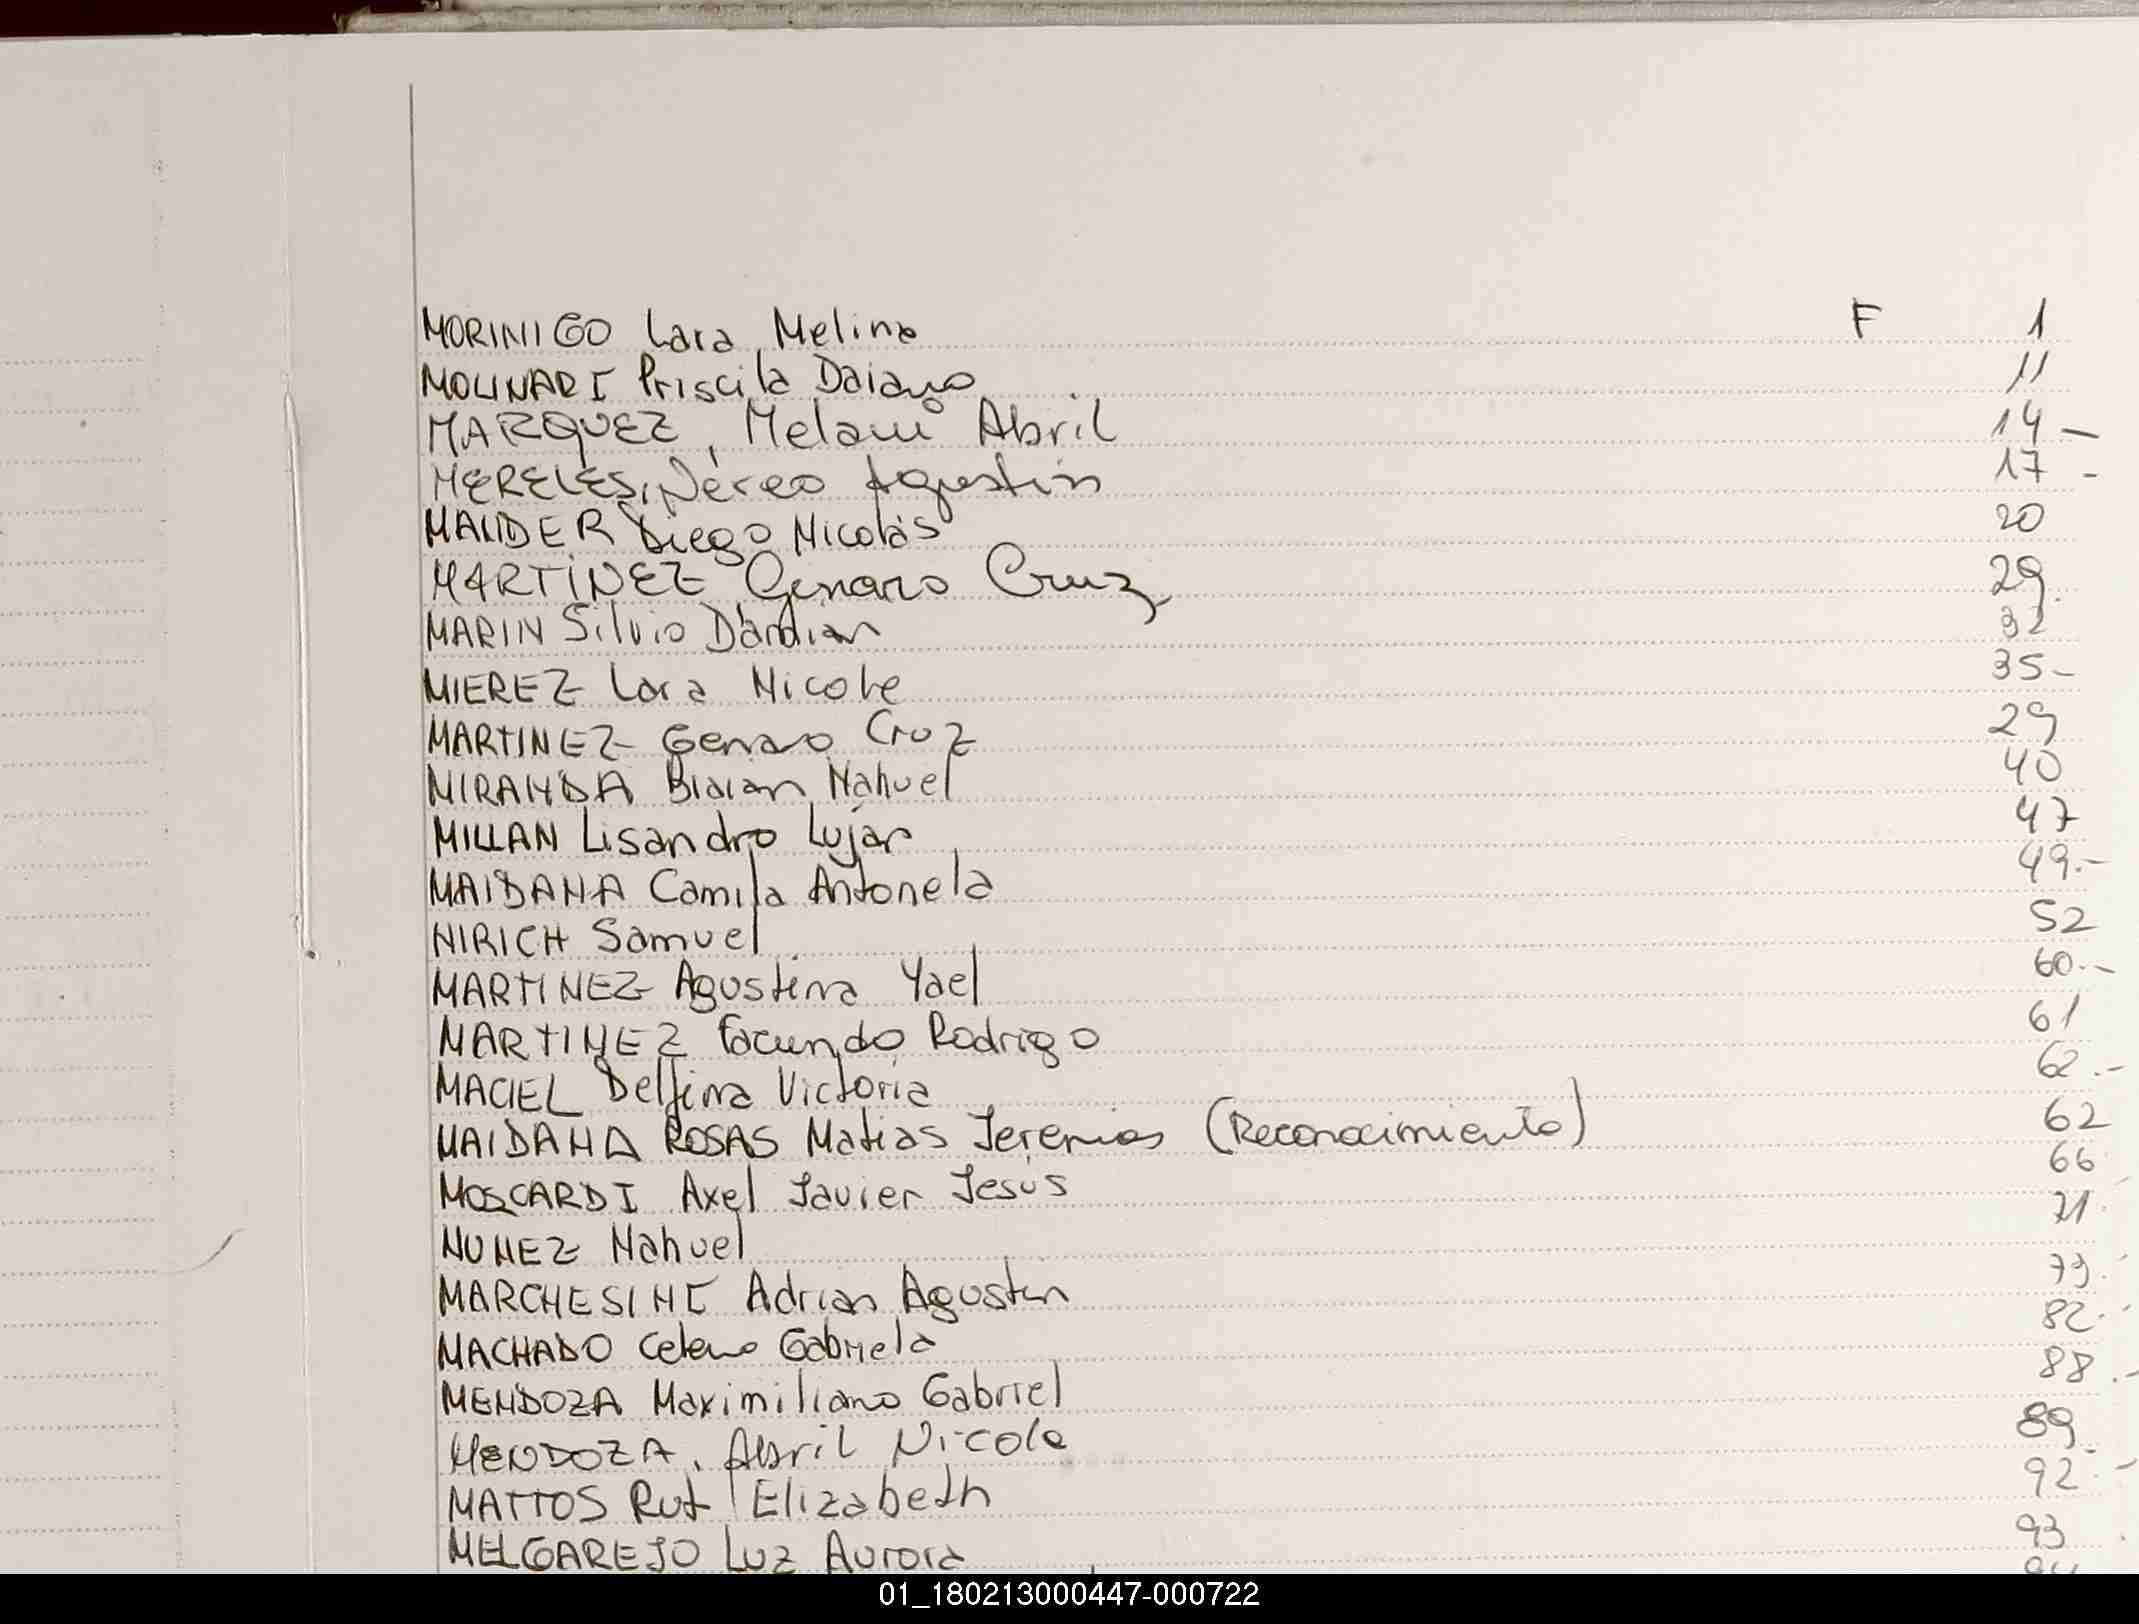 MORINIGO Lara Melina F 1
MOLINARI Priscila Daiana 11
MARQUEZ, Melani Abril 14 -
MERELES, Néreo Agustin 17 -
MANDER Diego Nicolás 20
MARTINEZ Genaro Cruz 29.
MARIN Silvio Damian 32
MIEREZ Lara Nicole 35-
MARTINEZ Genaro Cruz 29
MIRANDA Braian Nahuel 40
MILLAN Lisandro Lujan 47
MAIDANA Camila Antonela 49.-
NIRICH Samuel 52
MARTINEZ Agustina Yael 60.-
MARTINEZ Facundo Rodrigo 61
MACIEL Delfina Victoria 62.-
MAIDANA ROSAS Matias Jeremias (Reconocimiento) 62
MOSCARDI Axel Javier Jesús 66
NUNEZ Nahuel 71.
MARCHESINI Adrian Agustin 79.
MACHADO Celene Gabriela 82.
MENDOZA Maximiliano Gabriel 88.-
MENDOZA, Abril Nicole 89.
MATTOS Rut Elizabeth 92.-
MELGAREJO Luz Aurora 93.
01_180213000447-000722